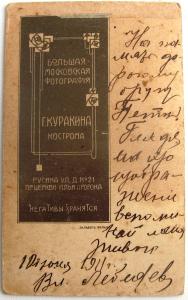 БОЛЬШАЯ
МОСКОВСКАЯ
ФОТОГРАФІЯ
Г.КУРАКИНА
КОСТРОМА
РУСИНА УЛ. Д. №21
НЕГАТИВЫ ХРАНЯТСЯ
На па
мять до
рогому
другу
Петѣ.
Глядя
на
изобра
женіе
вспоми
най меня
живого
Вл. Лебедев